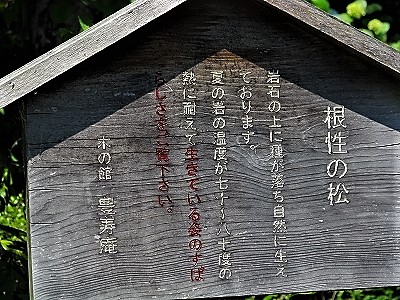 根性の松
岩石の上に種が落ち自然に生え
ております。
夏の岩の温度が七十〜八十度の
熱に耐えて生きている姿のすば
らしさをご覧下さい。
木の館 豊寿庵